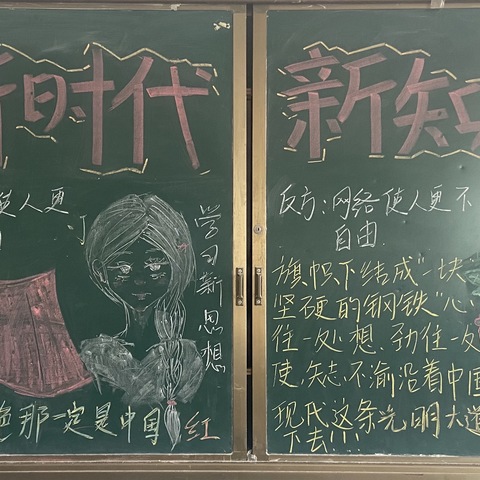 新时代
使人更
学习新思想
色那一定是中国红
新知
反方:网络使人更不
自由.
旗帜下结成"一块
坚硬的钢铁"心
往一处想、劲往一处
使,矢志不渝沿着中国
现代这条光明大道
下去!!!